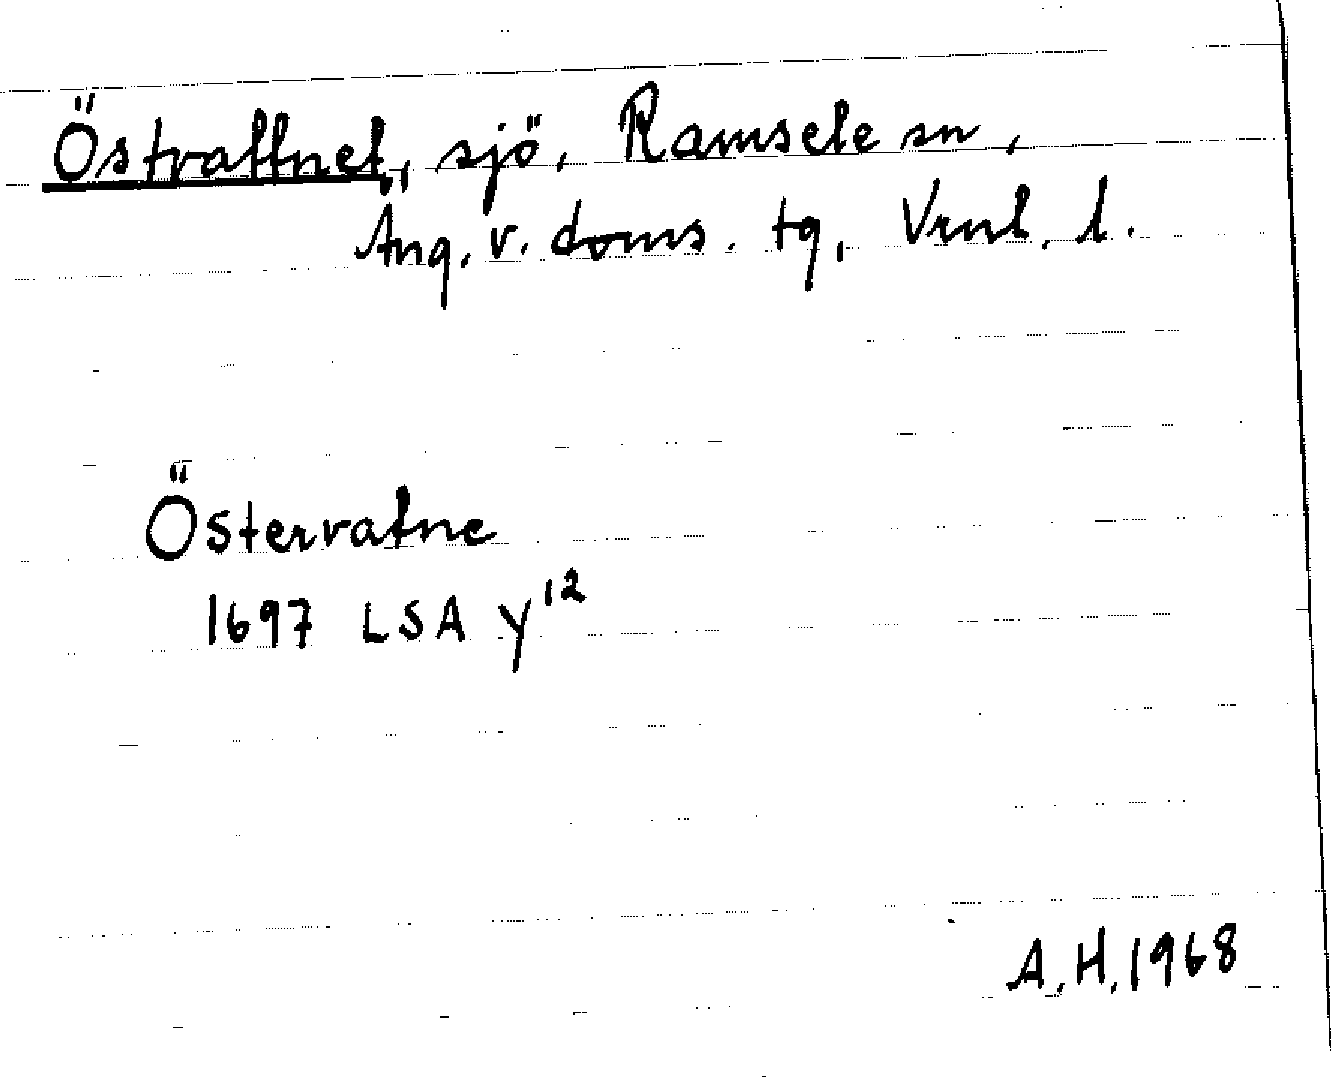 Östvattnet, sjö, Ramsele sn,
Ång. v. doms. tg, Vrnl. l.
Östervatne
1697 LSA Y¹²
A.H.1968